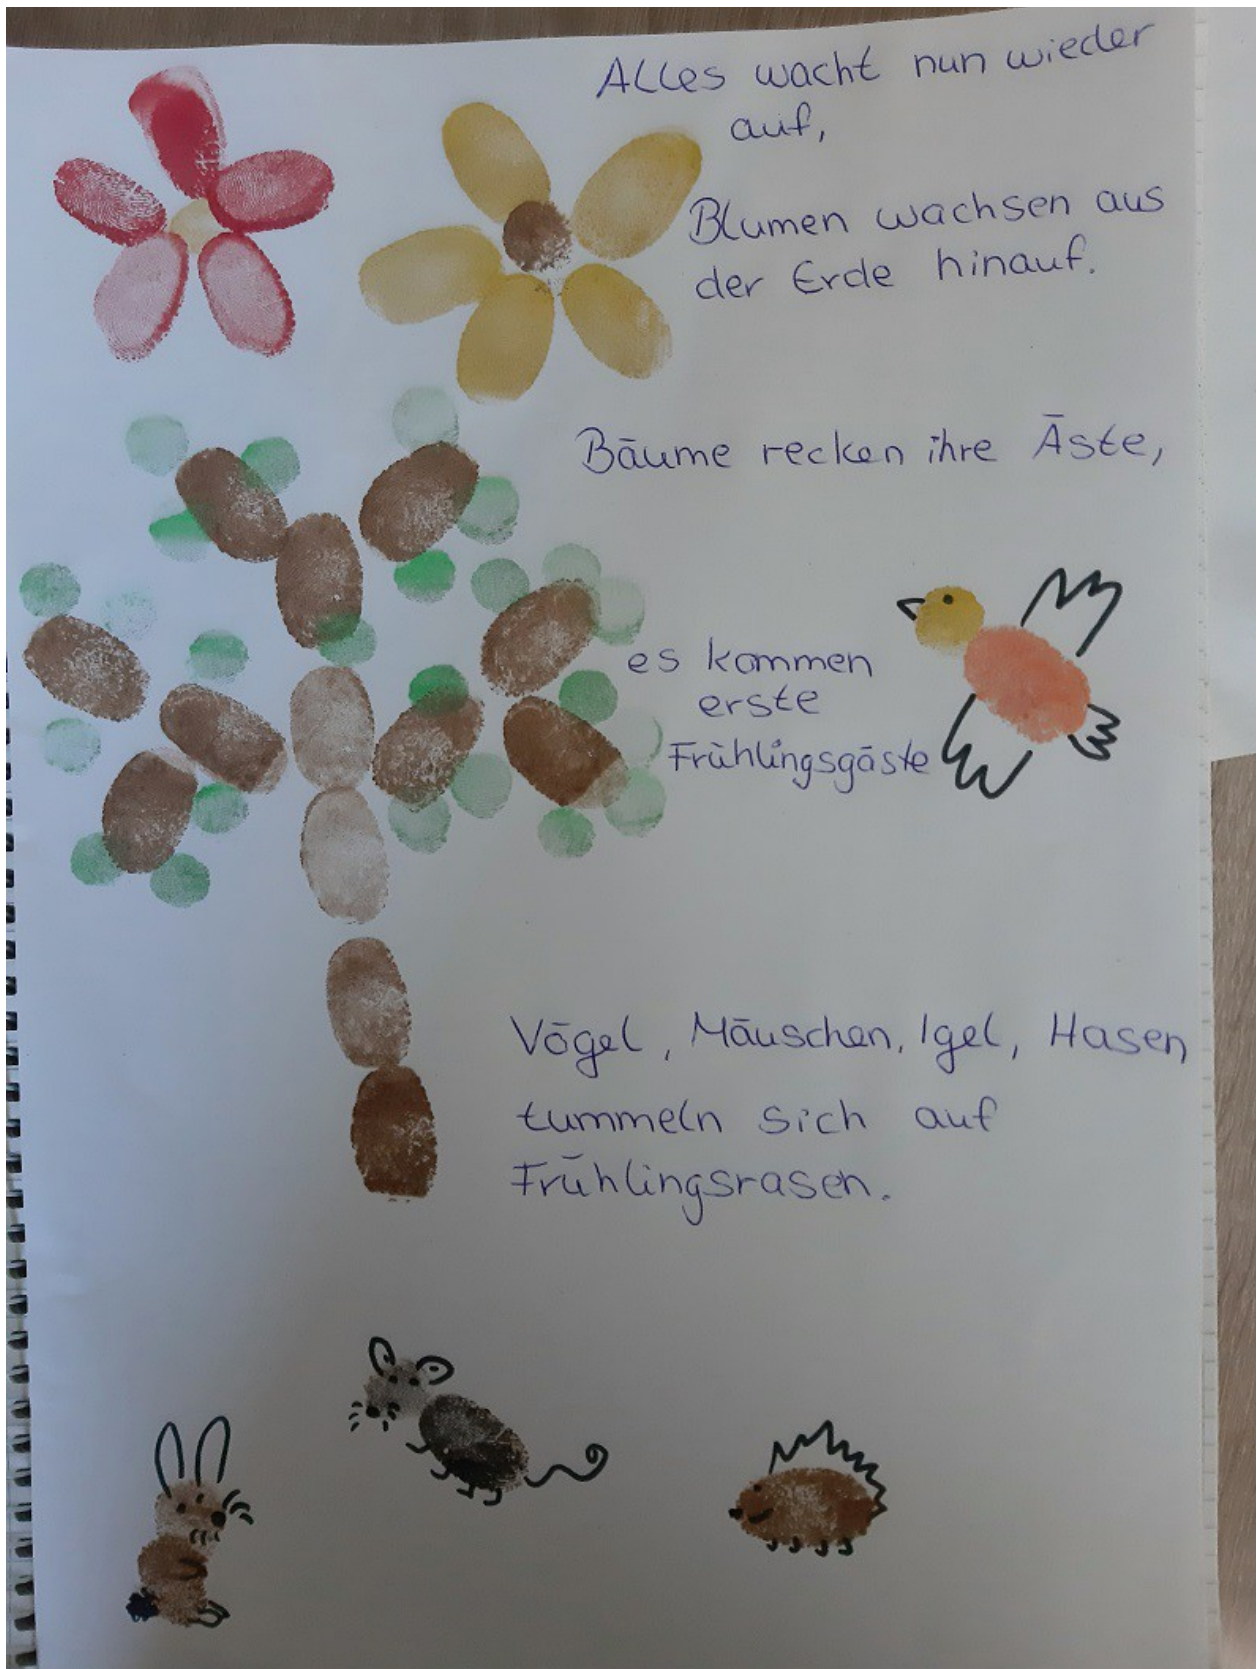 Alles wacht nun wieder
auf,
Blumen wachsen aus
der Erde hinauf.
Bäume recken ihre Äste,
es kommen
erste
Frühlingsgäste
Vögel, Mäuschen, Igel, Hasen
tummeln sich auf
Frühlingsrasen.